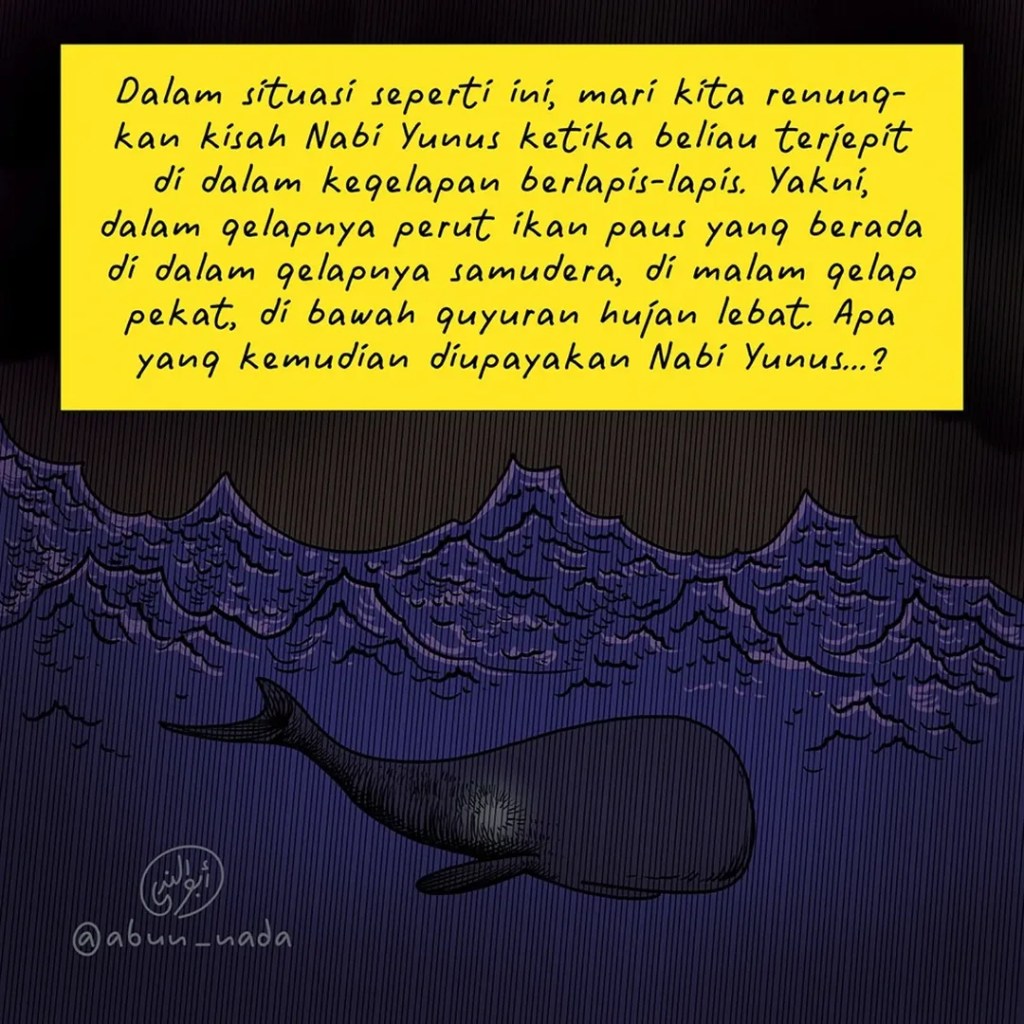 Dalam situasi seperti ini, mari kita renung-
kan kisah Nabi Yunus ketika beliau terjepit
di dalam kegelapan berlapis-lapis. Yakni,
dalam gelapnya perut ikan paus yang berada
di dalam gelapnya samudera, di malam gelap
pekat, di bawah guyuran hujan lebat. Apa
yang kemudian diupayakan Nabi Yunus...?
@abun_nada